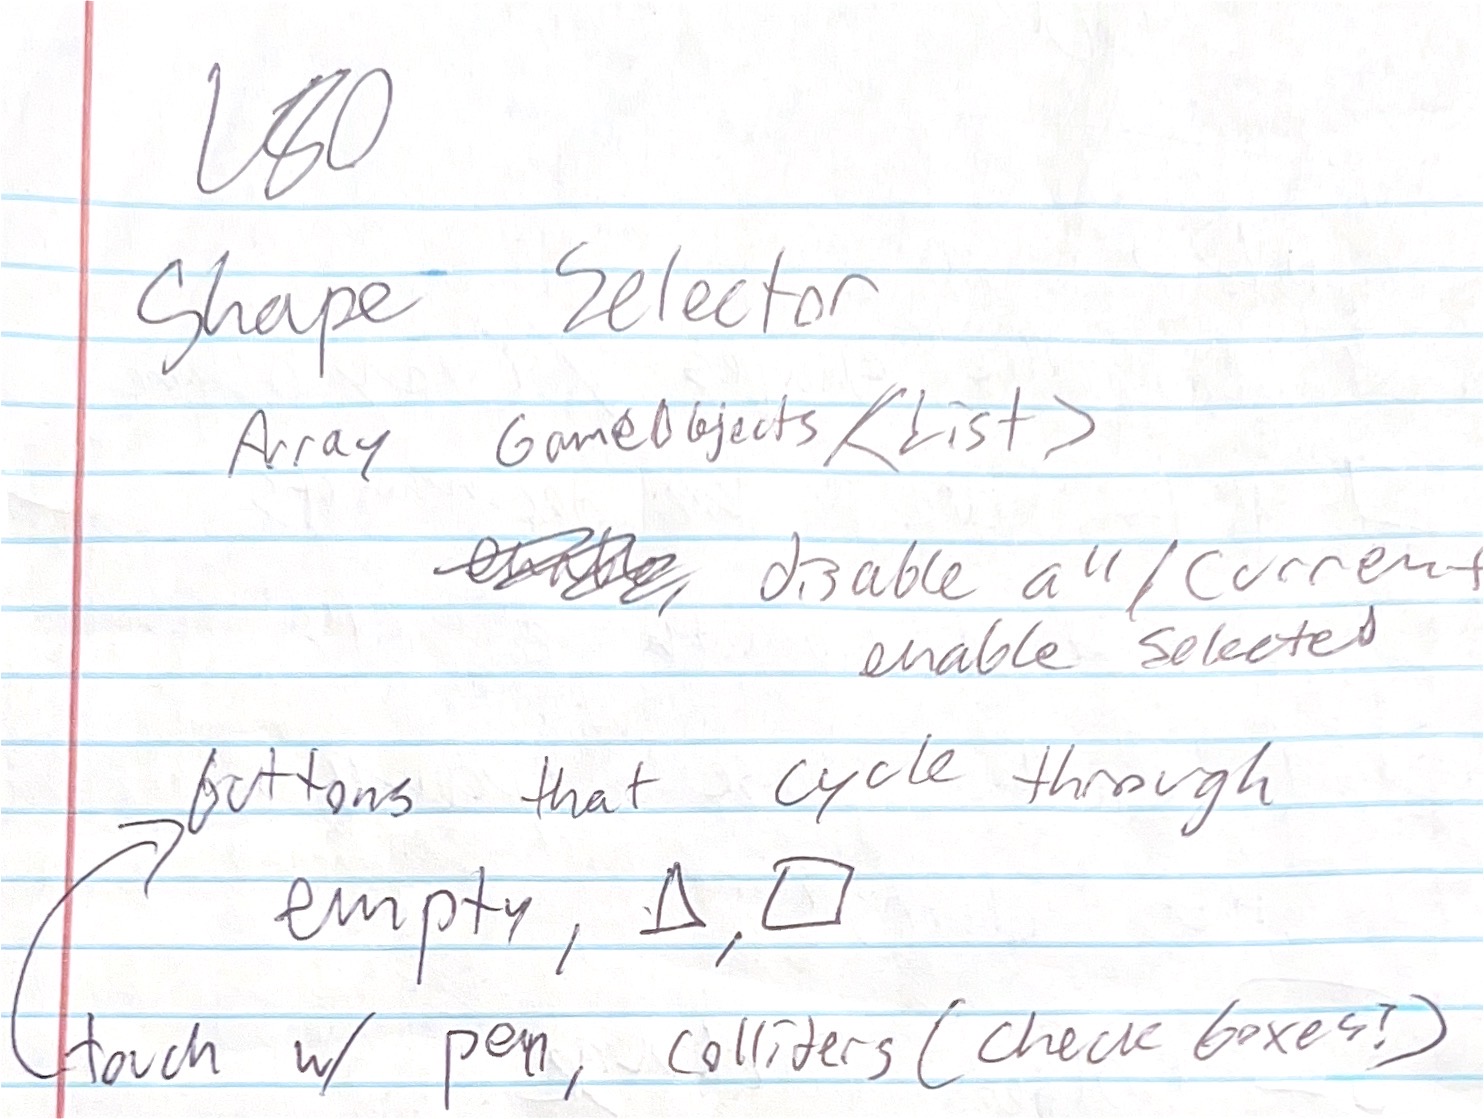 Shape Selector
Array GameObjects <List>
disable all / current
enable selected
buttons that cycle through
empty, △, □
touch w/ pen, colliders (check boxes?)